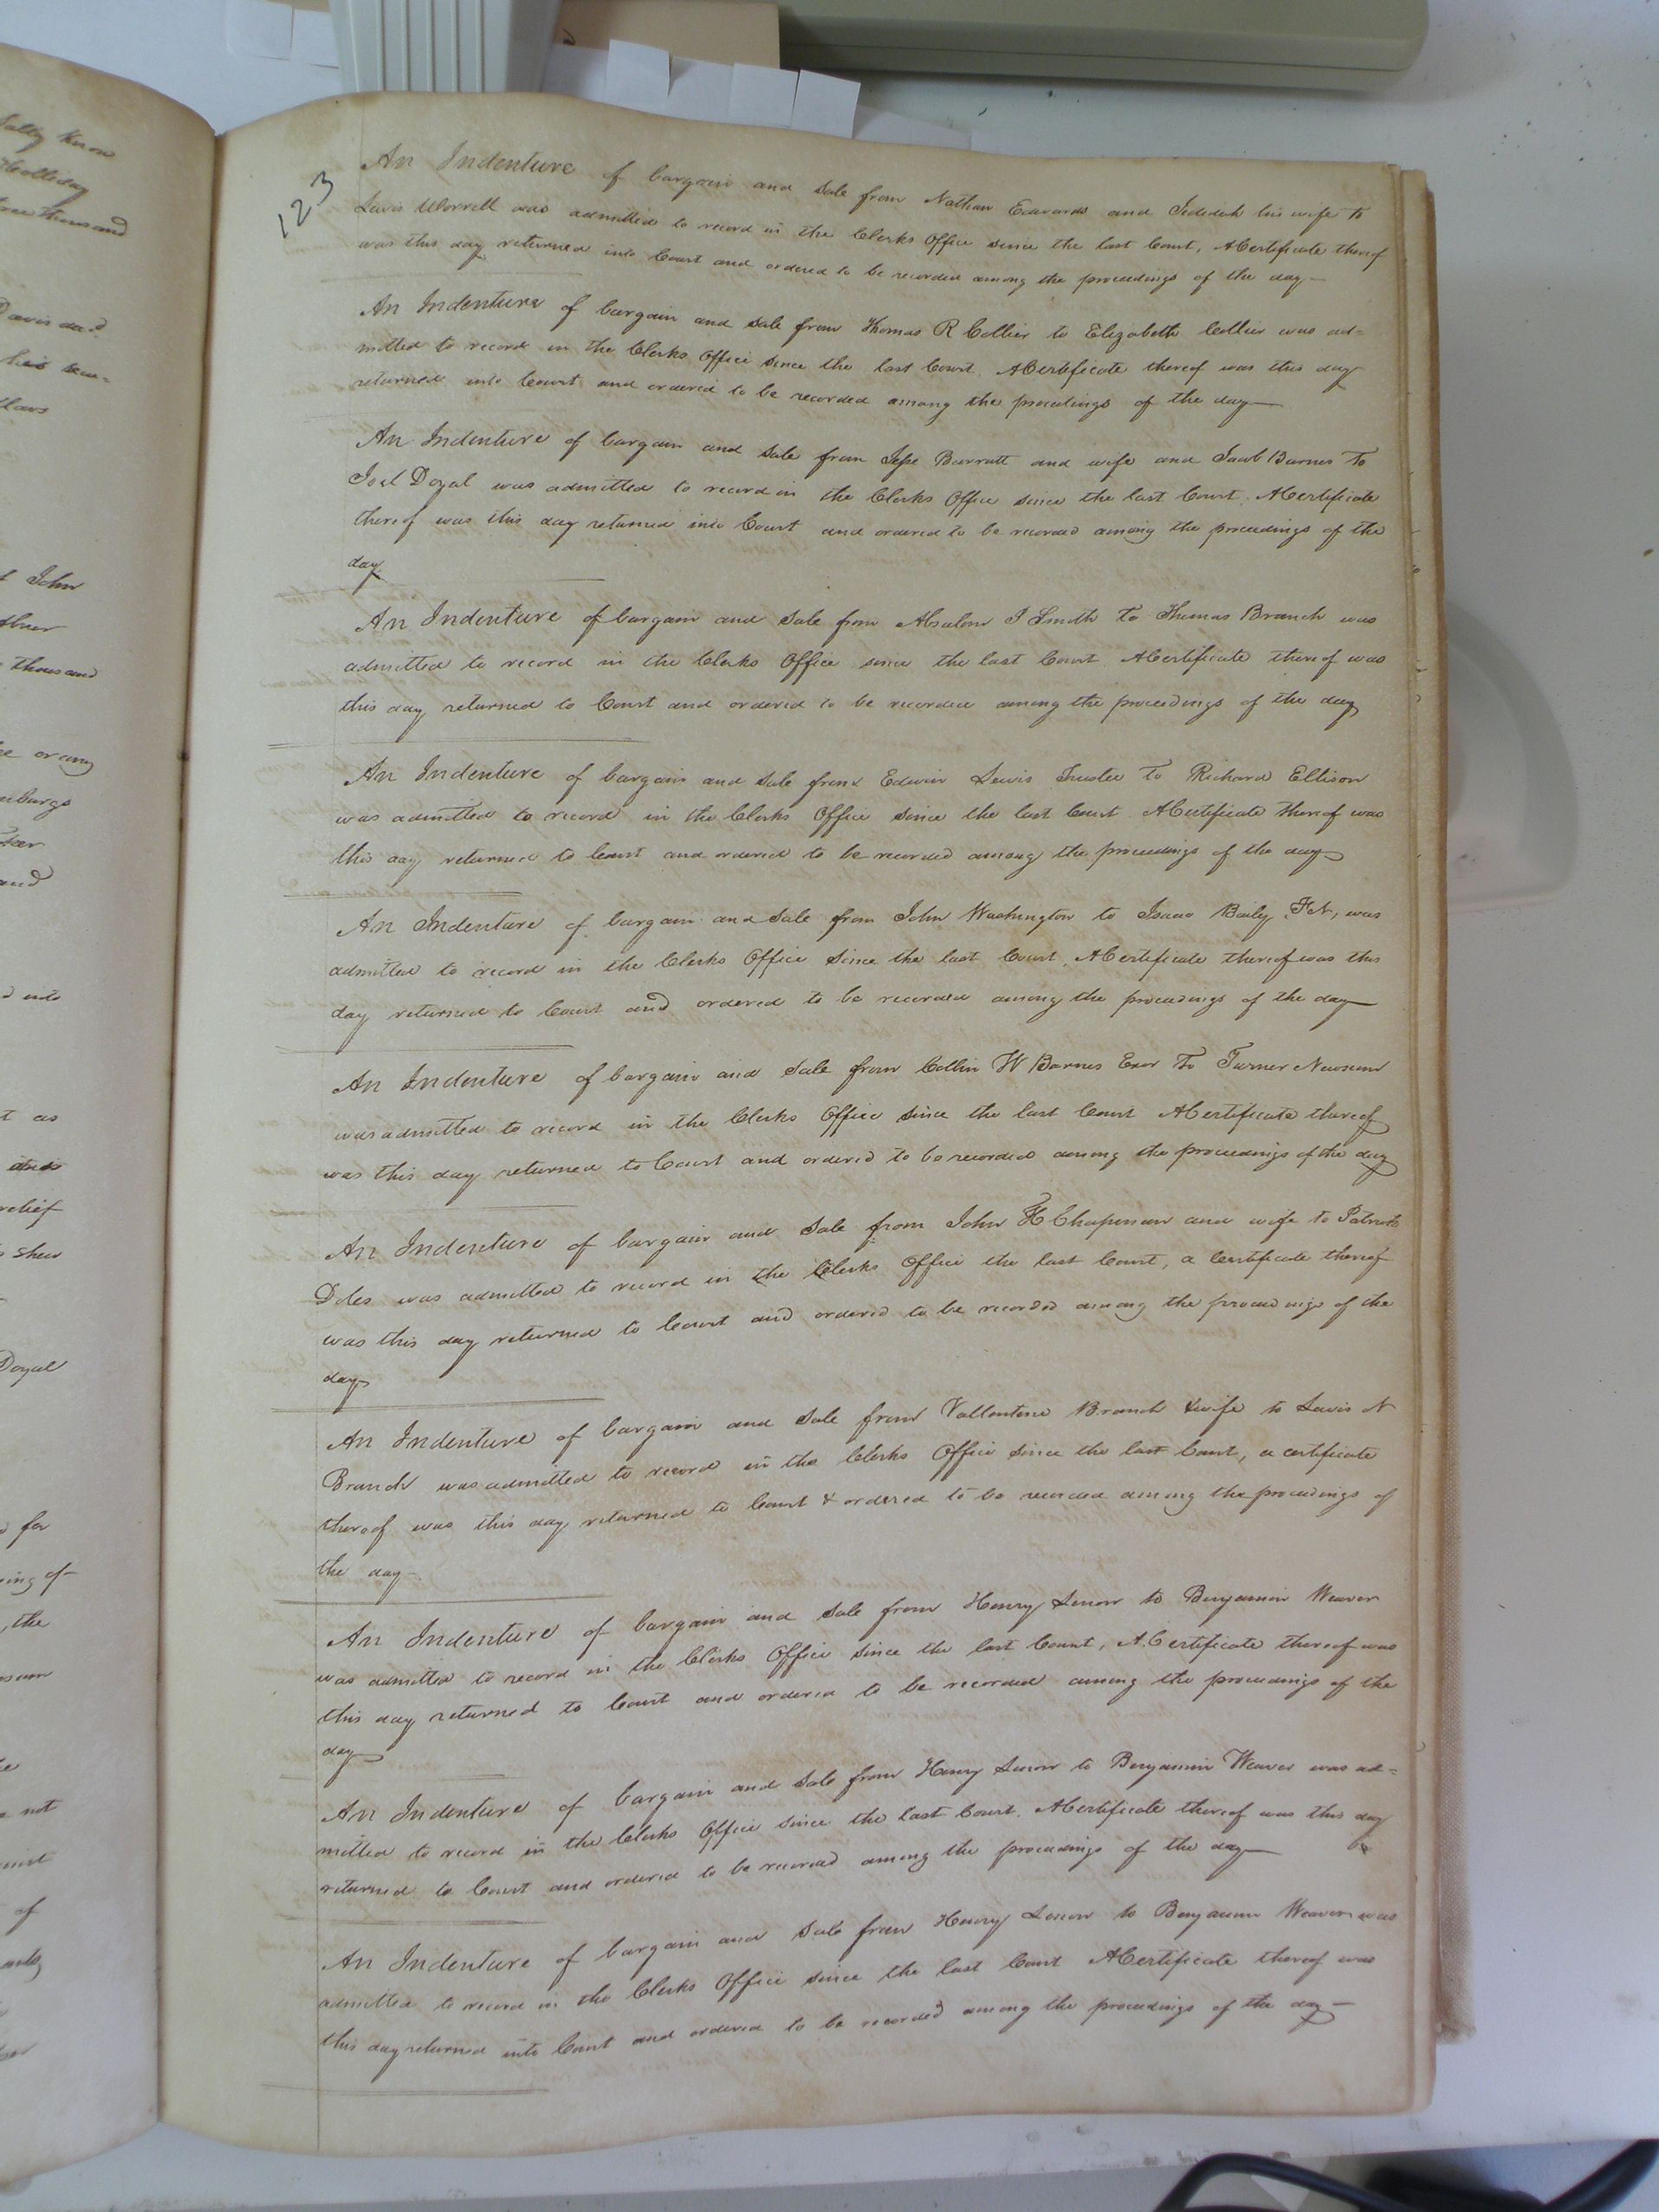 Sally Know
Holliday
three thousand
Davis da.d
his secu-
t John
thousand
or any
and
d into
t as
relief
shew
Doyal
d for
ing of
, the
not
of
123
An Indenture of bargain and sale from Nathan Edwards and Jedediah his wife to
Lewis Worrell was admitted to record in the Clerks Office since the last Court, A Certificate thereof
was this day returned into Court and ordered to be recorded among the proceedings of the day—
An Indenture of bargain and sale from Thomas R Collier to Elizabeth Collier was ad=
mitted to record in the Clerks Office since the last Court. A Certificate thereof was this day
returned into Court and ordered to be recorded among the proceedings of the day—
An Indenture of bargain and sale from Jesse Barratt and wife and Jacob Barnes to
Joel Doyal was admitted to record in the Clerks Office since the last Court. A Certificate
thereof was this day returned into Court and ordered to be recorded among the proceedings of the
day.
An Indenture of bargain and sale from Absalom J Smith to Thomas Branch was
admitted to record in the Clerks Office since the last Court. A Certificate thereof was
this day returned to Court and ordered to be recorded among the proceedings of the day
An Indenture of bargain and sale from Edwin Lewis Trustee to Richard Ellison
was admitted to record in the Clerks Office since the last Court. A Certificate thereof was
this day returned to Court and ordered to be recorded among the proceedings of the day—
An Indenture of bargain and sale from John Washington to Isaac Baily, was
admitted to record in the Clerks Office since the last Court, A Certificate thereof was this
day returned to Court and ordered to be recorded among the proceedings of the day—
An Indenture of bargain and sale from Collin W Barnes Exor to Turner Newsum
was admitted to record in the Clerks Office since the last Court A Certificate thereof
was this day returned to Court and ordered to be recorded among the proceedings of the day
An Indenture of bargain and sale from John H Chapman and wife to Patrick
Doles was admitted to record in the Clerks Office the last Court, a Certificate thereof
was this day returned to Court and ordered to be recorded among the proceedings of the
day—
An Indenture of bargain and sale from Vallentine Branch & wife to Lewis N
Branch was admitted to record in the Clerks Office since the last Court, a certificate
thereof was this day returned to Court & ordered to be recorded among the proceedings of
the day—
An Indenture of bargain and sale from Henry Lenow to Benjamin Weaver
was admitted to record in the Clerks Office since the last Court, A Certificate thereof was
this day returned to Court and ordered to be recorded among the proceedings of the
day—
An Indenture of bargain and sale from Henry Lenow to Benjamin Weaver was ad=
mitted to record in the Clerks Office since the last Court. A Certificate thereof was this day
returned to Court and ordered to be recorded among the proceedings of the day—
An Indenture of bargain and sale from Henry Lenow to Benjamin Weaver was
admitted to record in the Clerks Office since the last Court A Certificate thereof was
this day returned into Court and ordered to be recorded among the proceedings of the day—